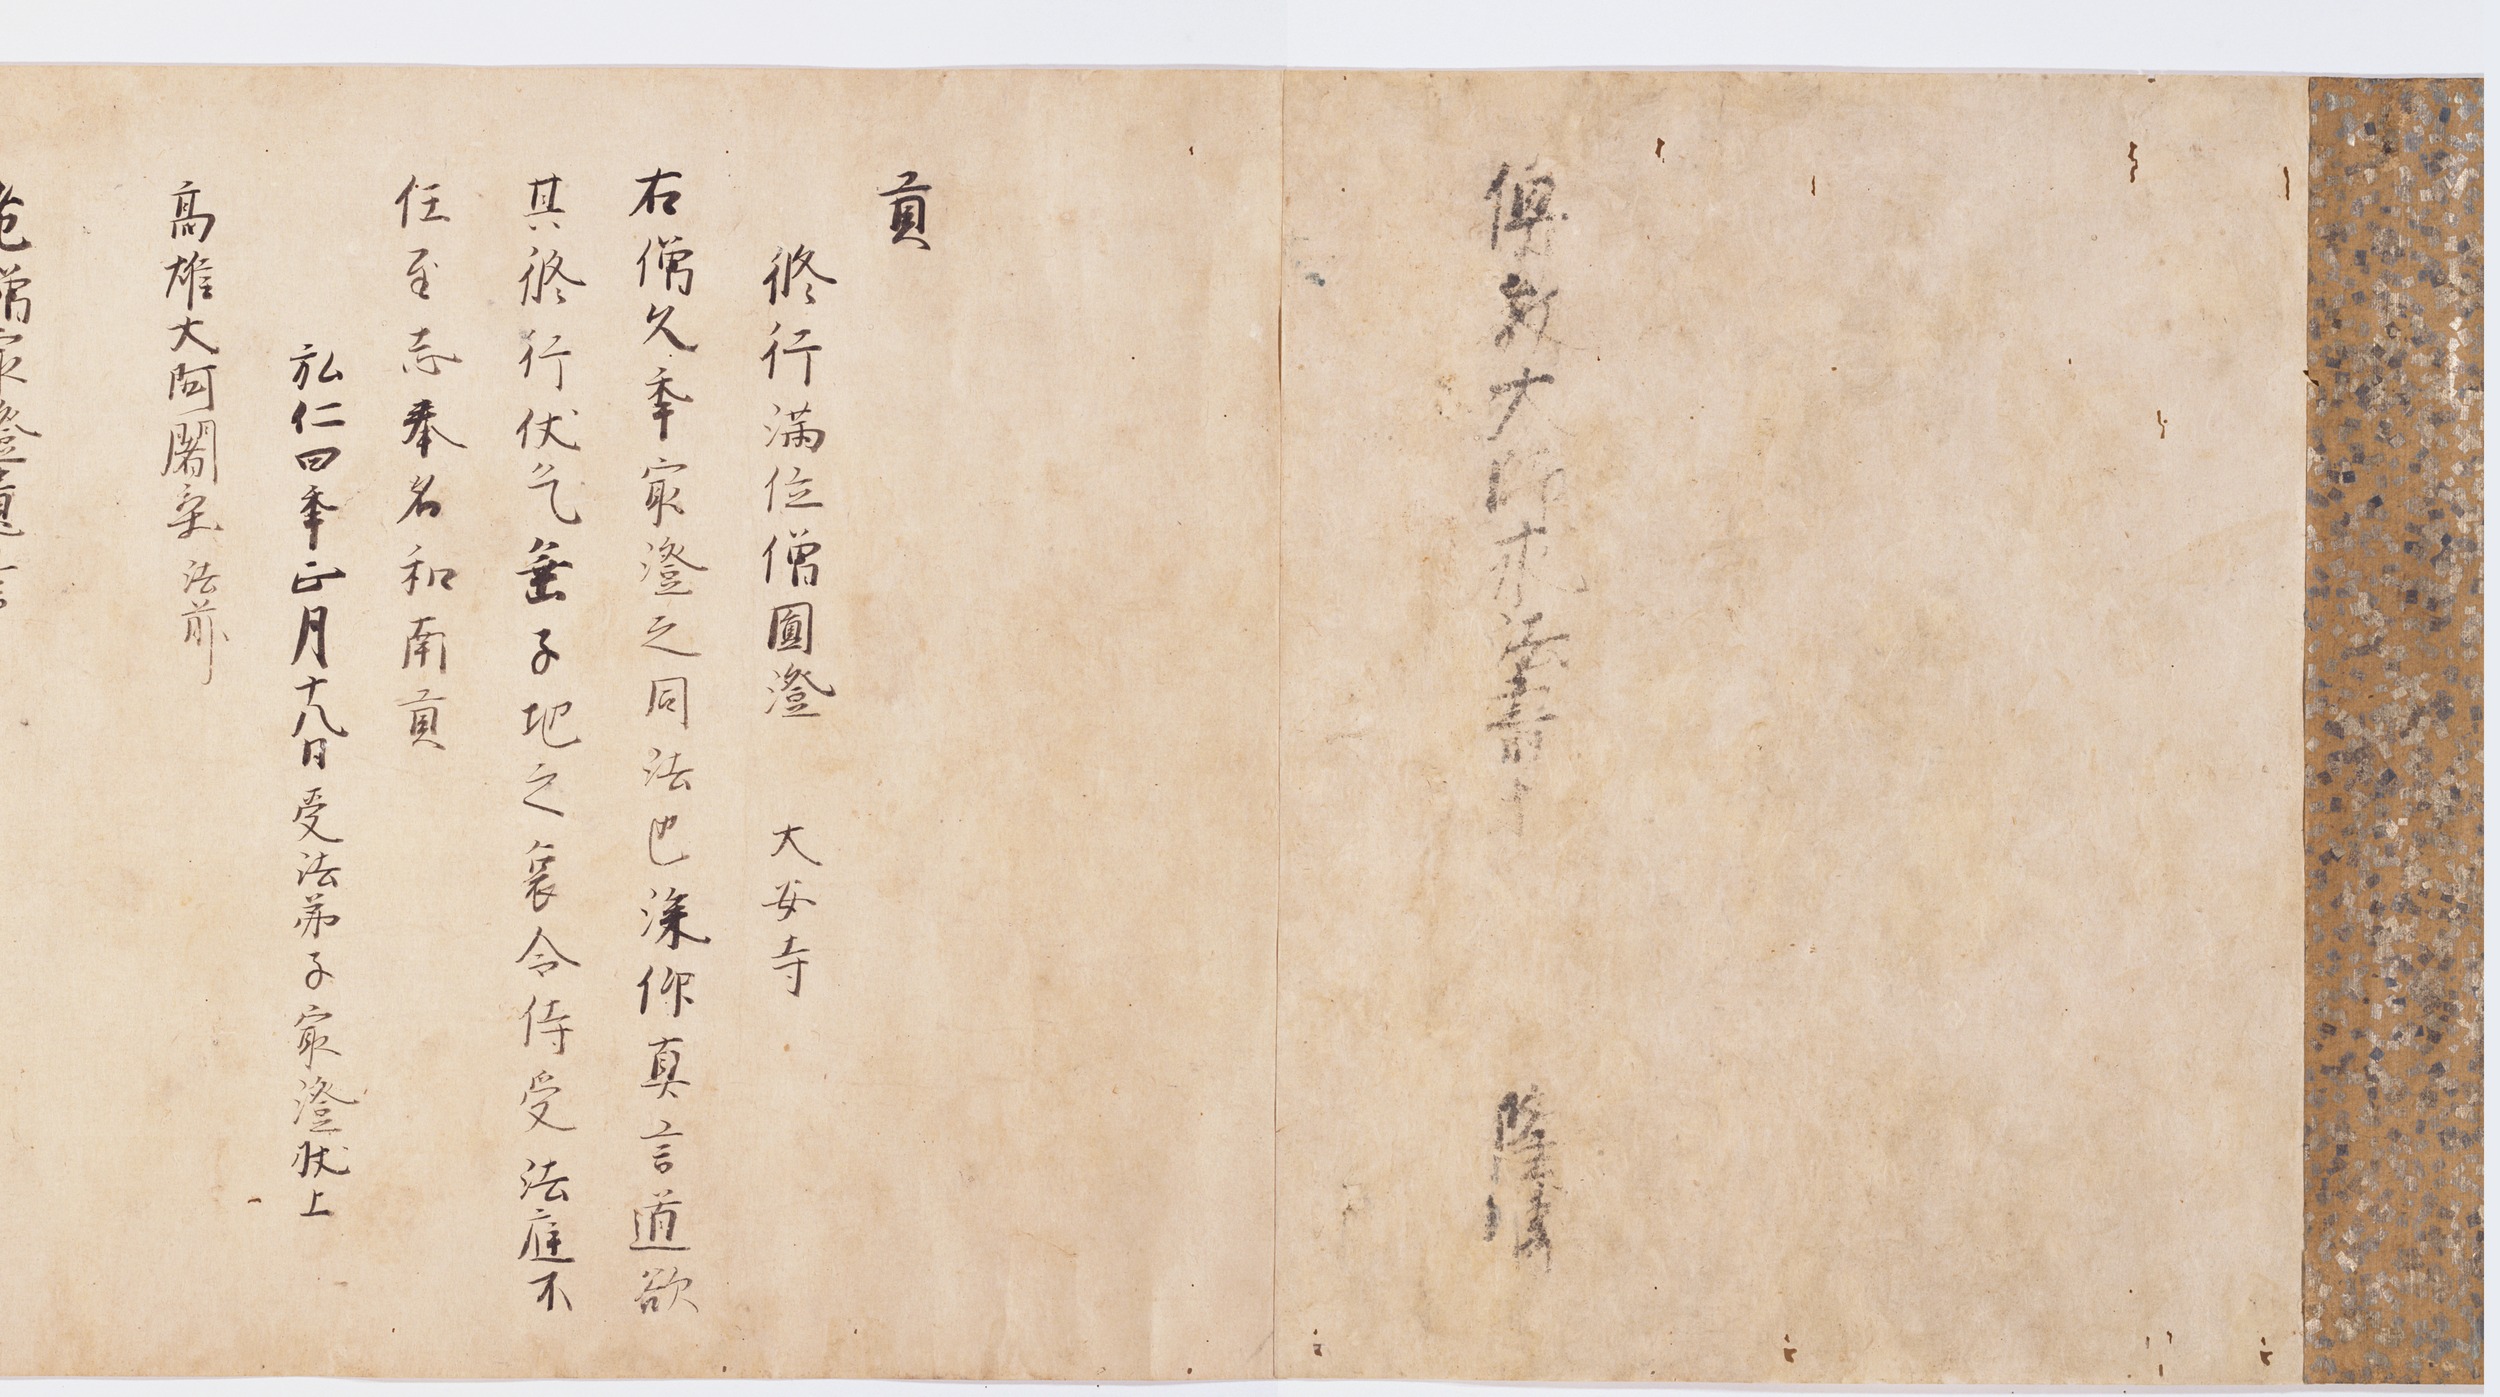 傳教大師求法書
貢
修行滿位僧圓澄 大安寺
右僧久季最澄之同法也深仰真言道欲
其修行伏乞垂子地之哀令侍受法庭不
任至志奉名和南貢
弘仁四季正月十八日受法弟子最澄状上
髙雄大阿闍梨 法前
僧最澄